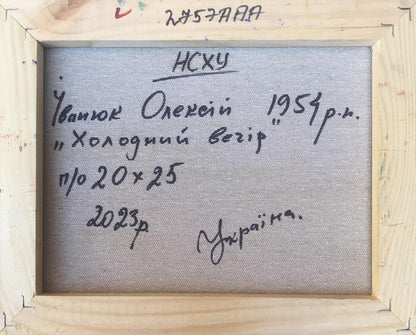 2757AAA
НСХУ
Івпиюк Олексій 1954 р.н.
„Холодний вечір"
п/о 20х25
2023р.
Україна.